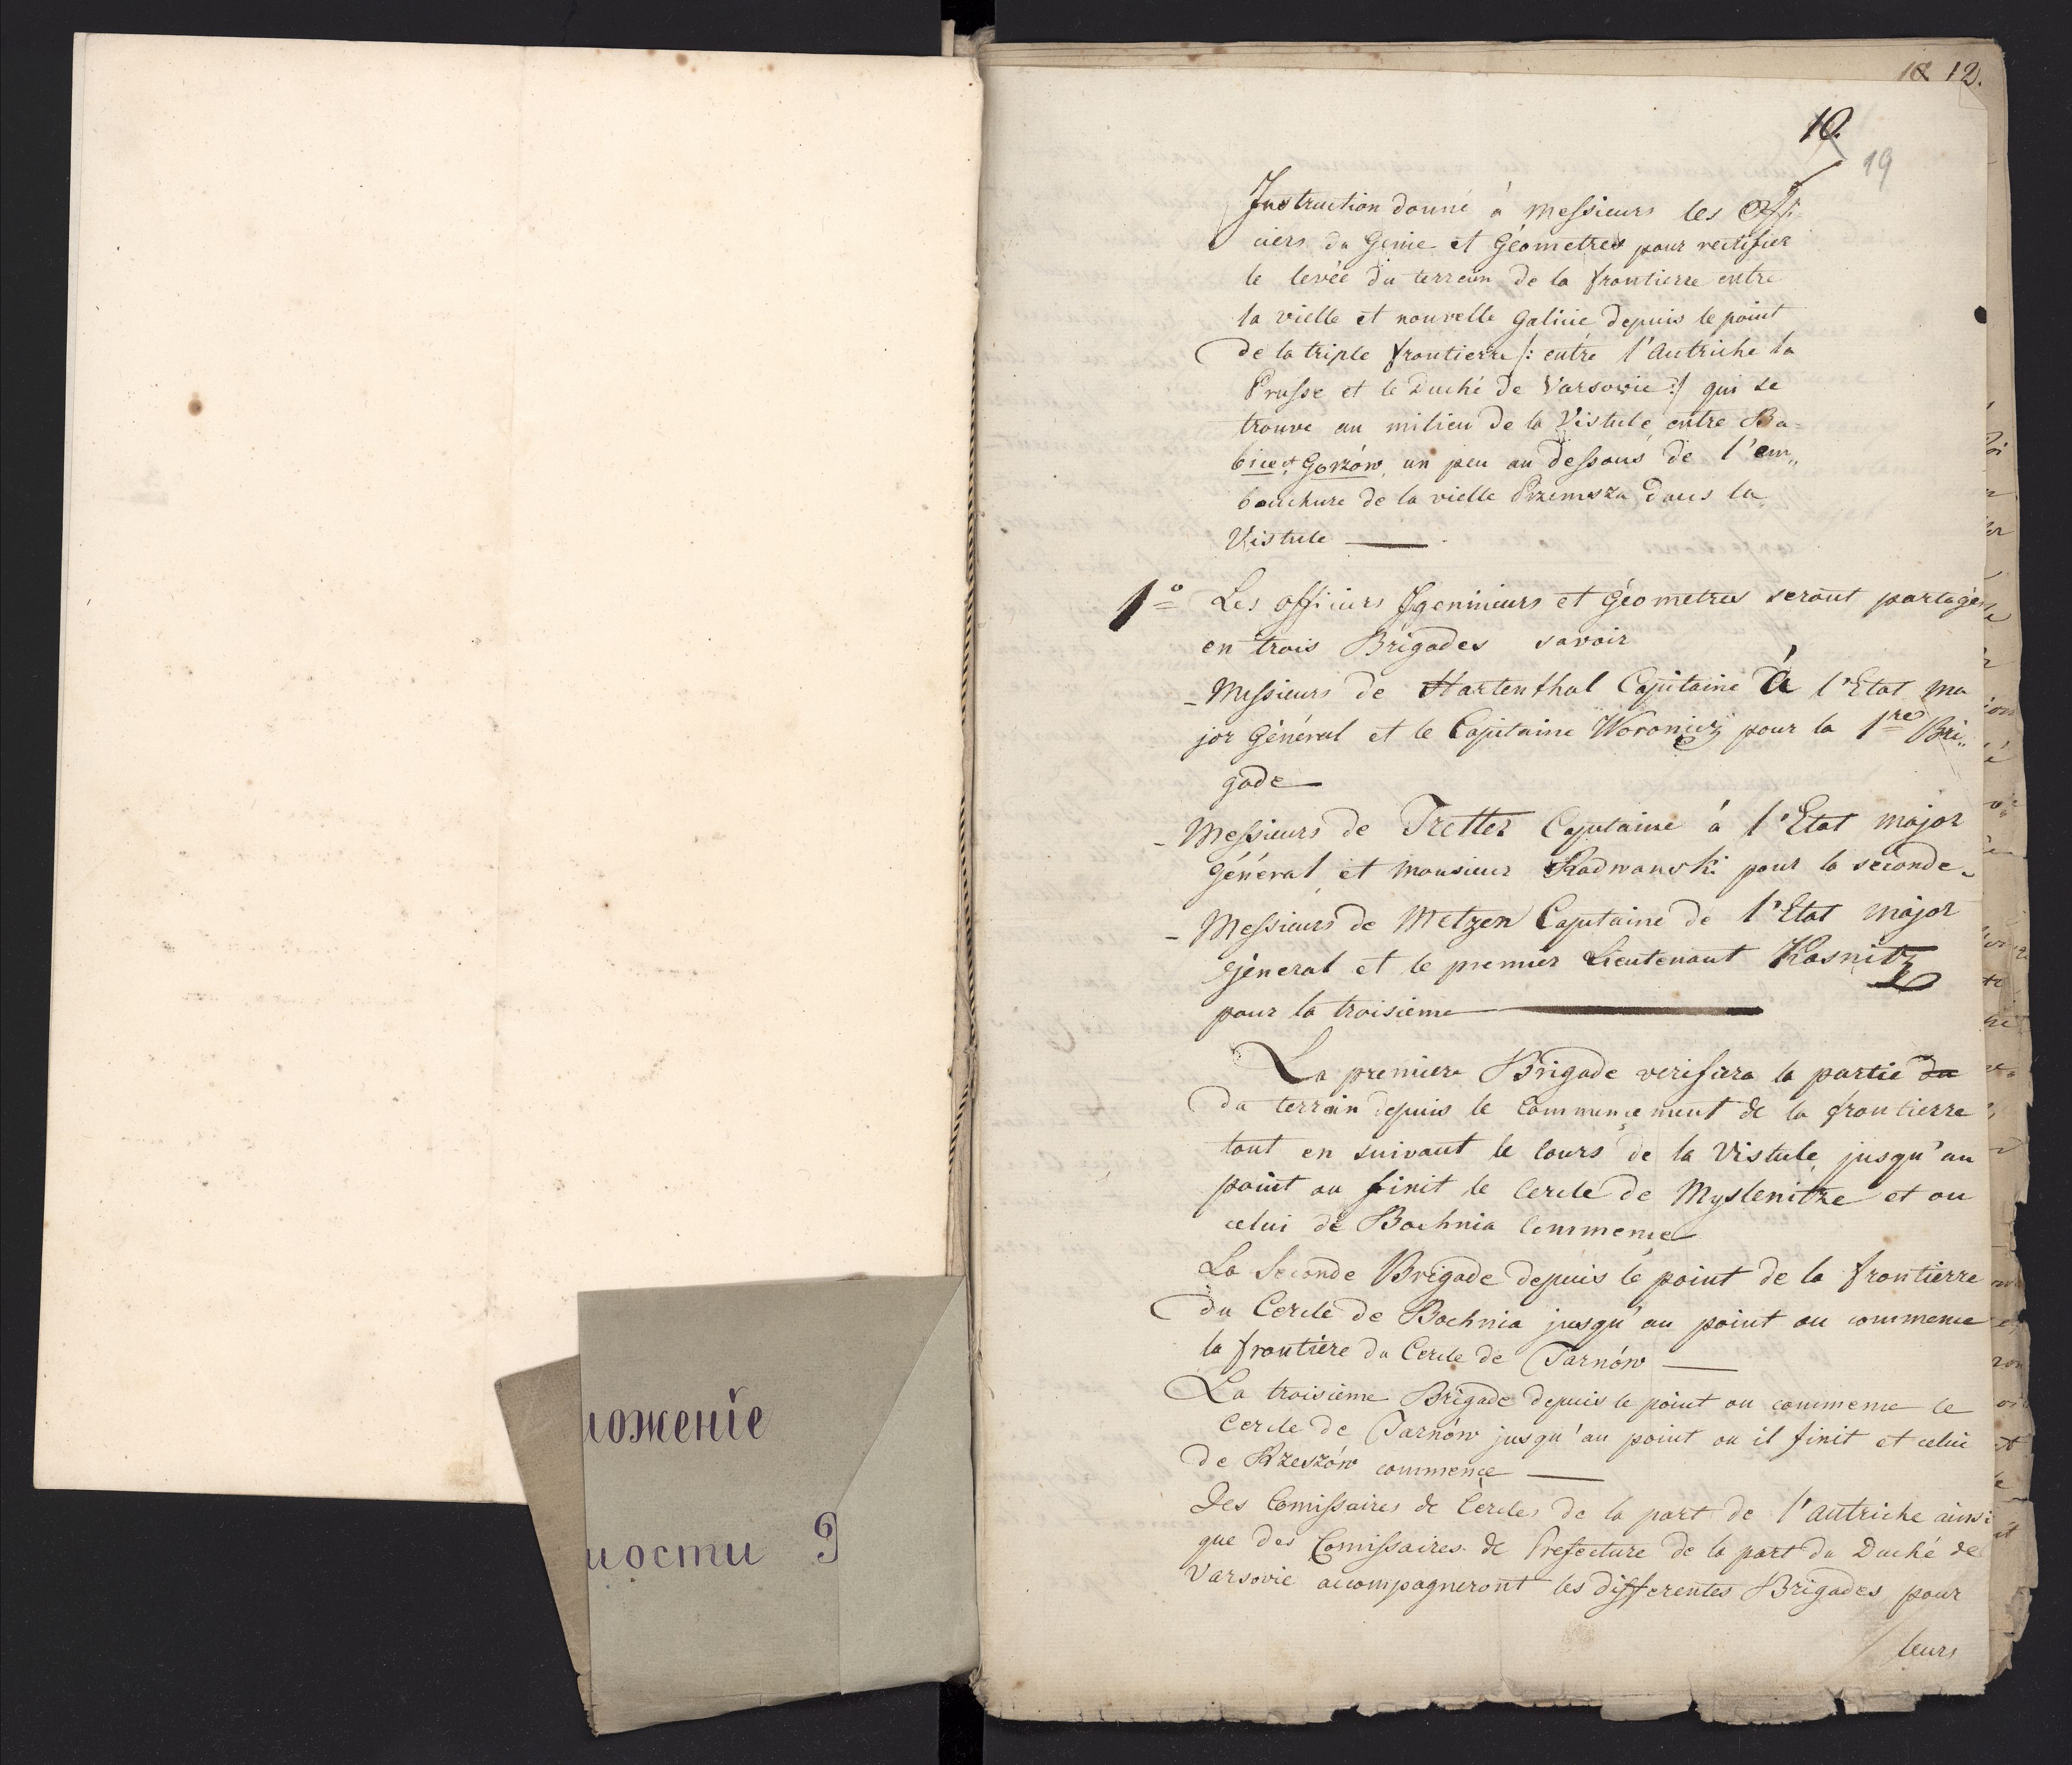 ложеніе
ности 9
12.
10.
19
Instruction donné à Messieurs les Offi
ciers du Genie et Géometres pour rectifier
le levée du terrein de la frontierre entre
la vielle et nouvelle Galicie, depuis le point
de la triple frontierre /: entre l'Autriche la
Prusse et le Duché de Varsovie :/ qui se
trouve au milieu de la Vistule entre Ba=
bice et Gorzów, un peu au dessous de l'em„
bouchure de la vielle Przemsza dans la
Vistule —
1° Les officiers Igenineurs et Géometres seront partagés
en trois Brigades savoir
- Messieurs de Hartenthal Capitaine à l'Etat ma
jor Général et le Capitaine Woronicz pour la 1re Bri„
gade
- Messieurs de Tretter Capitaine à l'Etat major
Général et Monsieur Radwanski pour la seconde.
- Messieurs de Metzen Capitaine de l'Etat major
Géneral et le premier Lieutenant Kosnitz
pour la troisieme —
La premiere Brigade verifiera la partie du
du terrain depuis le commencement de la frontierre
tout en suivant le cours de la Vistule, jusqu'au
point ou finit le Cercle de Myslenitze et ou
celui de Bochnia commence
La Seconde Brigade depuis le point de la frontierre
du Cercle de Bochnia jusqu'au point ou commence
la frontière du Cercle de Tarnów —
La troisieme Brigade depuis le point ou commence le
Cercle de Tarnów jusqu'au point ou il finit et celui
de Rzeszów commence —
Des Comissaires de Cercles de la part de l'Autriche ainsi
que des Comissaires de Prefecture de la part du Duché de
Varsovie accompagneront les differentes Brigades, pour
leurs